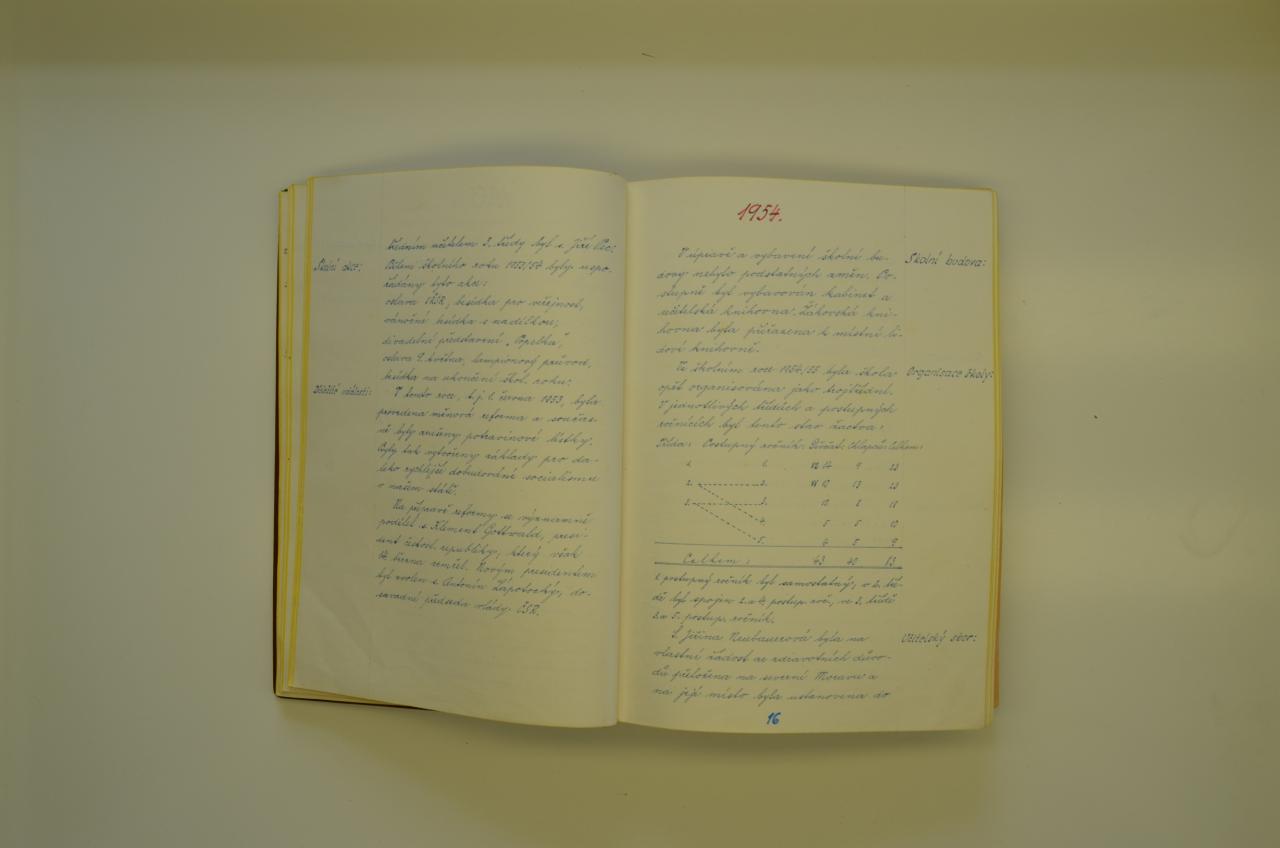 třídním učitelem 3. třídy byl s. Jiří
Školní akce:
Během školního roku 1953/54 byly uspo-
řádány tyto akce:
oslava VŘSR, besídka pro veřejnost,
vánoční besídka s nadílkou,
divadelní představení „Popelka",
oslava 9. května, lampionový průvod,
besídka na ukončení škol. roku.
události:
V tomto roce, t.j. 1. června 1953, byla
provedena měnová reforma a součas-
ně byly zrušeny potravinové lístky.
Byly tak vytvořeny základy pro da-
leko rychlejší dobudování socialismu
v našem státě.
Na přípravě reformy se významně
podílel s. Klement Gottwald, presi-
dent českosl. republiky, který však
14. března zemřel. Novým presidentem
byl zvolen s. Antonín Zápotocký, do-
savadní předseda vlády ČSR.
1954.
Školní budova:
V úpravě a vybavení školní bu-
dovy nebylo podstatných změn. Po-
stupně byl vybavován kabinet a
učitelská knihovna. Žákovská kni-
hovna byla přiřazena k místní li-
dové knihovně.
Organisace školy:
Ve školním roce 1954/55 byla škola
opět organisována jako trojtřídní.
V jednotlivých třídách a postupných
ročnících byl tento stav žactva:
Třída: Postupný ročník: Děvčat: Chlapců: Celkem:
1. 1. 14 9 23
2. 2. 10 13 23
3. 3. 10 8 18
4. 5 5 10
5. 4 5 9
Celkem: 43 40 83
1. postupný ročník byl samostatný, v 2. tří-
dě byl spojen 2. a 4. postup. roč., ve 3. třídě
3. a 5. postup. ročník.
Učitelský sbor:
S. Jiřina Neubauerová byla na
vlastní žádost ze zdravotních důvo-
dů přeložena na severní Moravu a
na její místo byla ustanovena do
16